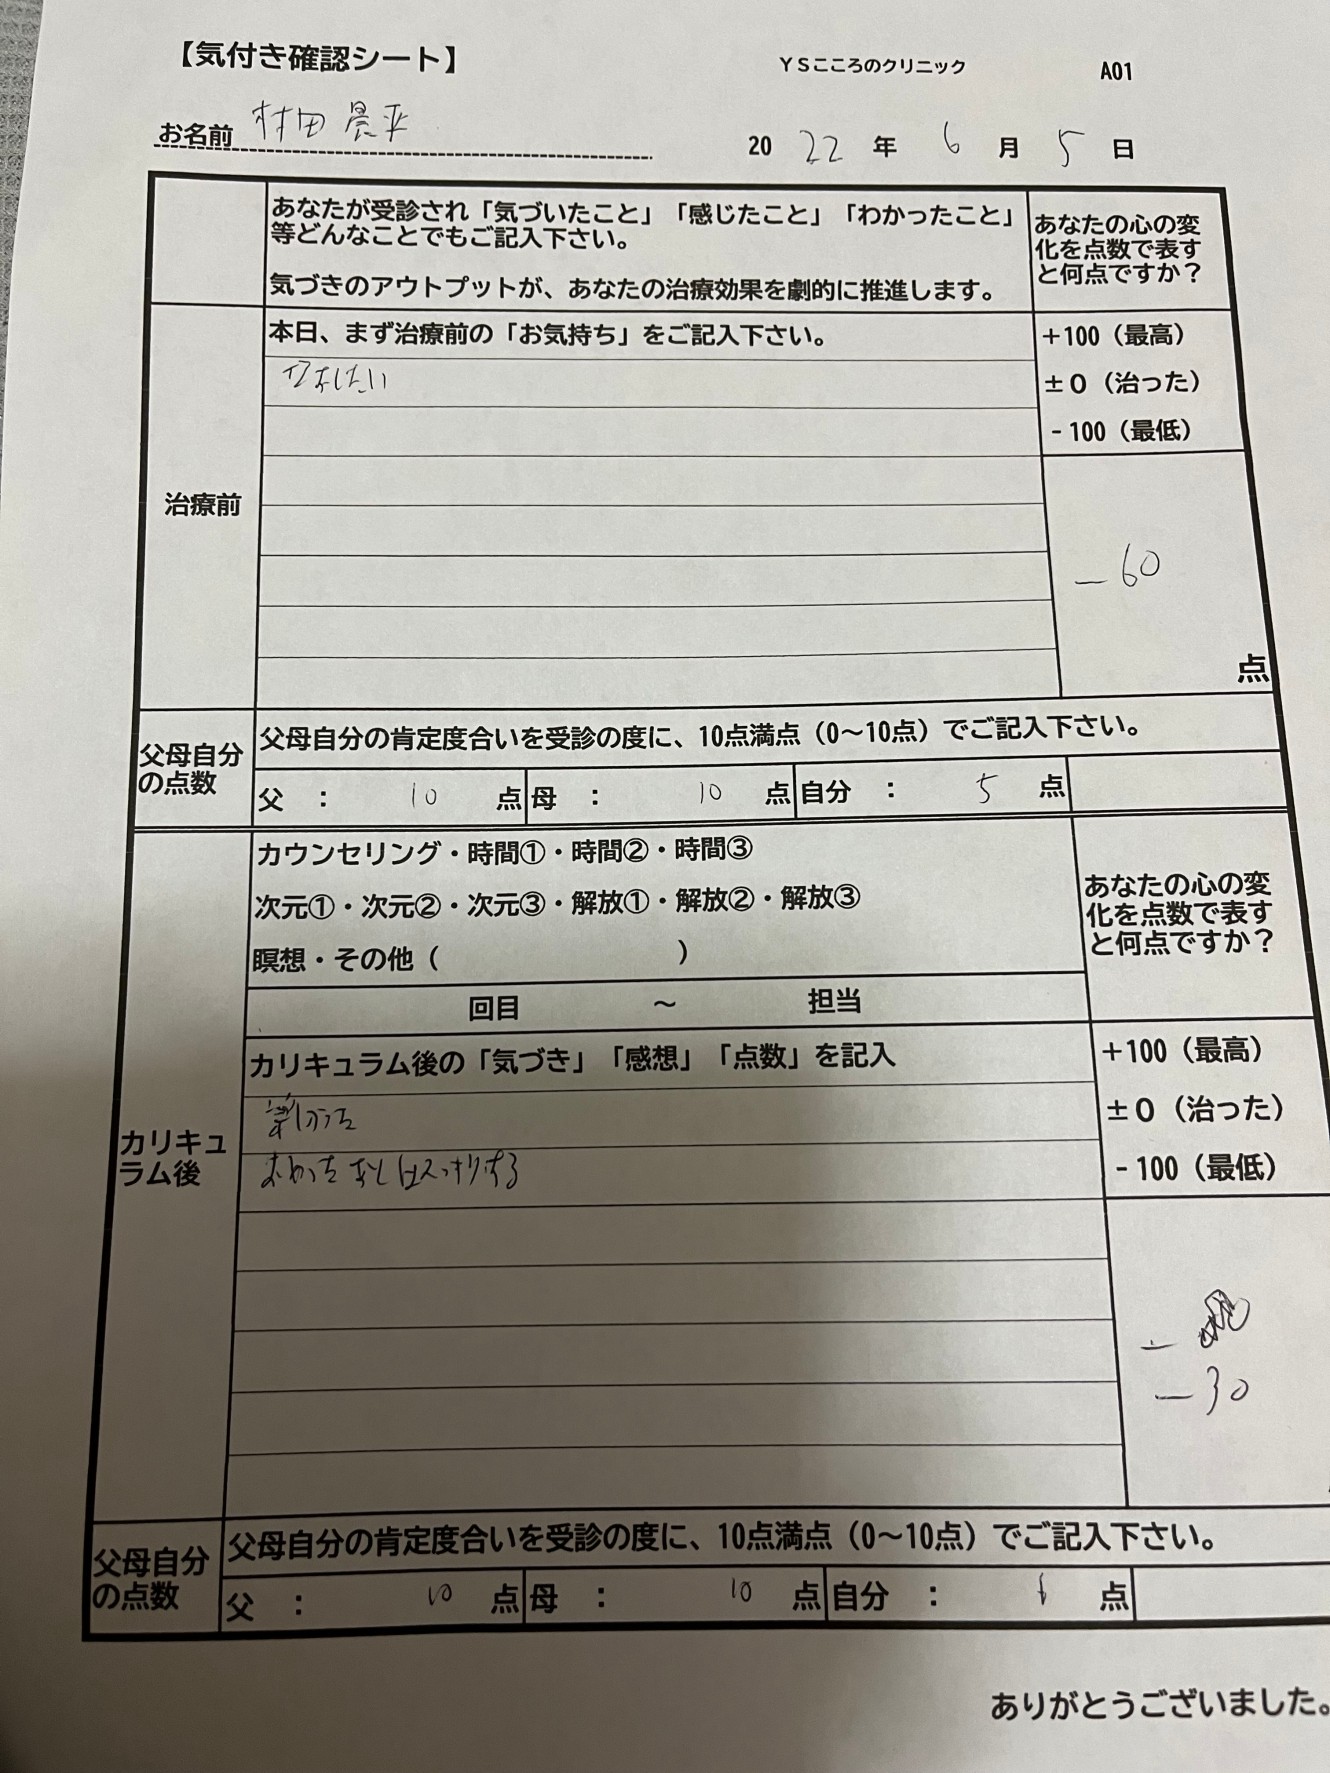 【気付き確認シート】
YSこころのクリニック
A01
お名前 村田 晨平
2022年6月5日
あなたが受診され「気づいたこと」「感じたこと」「わかったこと」
等どんなことでもご記入下さい。
気づきのアウトプットが、あなたの治療効果を劇的に推進します。
あなたの心の変
化を点数で表す
と何点ですか？
治療前
本日、まず治療前の「お気持ち」をご記入下さい。
+100（最高）
±0（治った）
-100（最低）
-60
点
父母自分
の点数
父母自分の肯定度合いを受診の度に、10点満点（0～10点）でご記入下さい。
父 ： 10 点 母 ： 10 点 自分 ： 5 点
カリキュ
ラム後
カウンセリング・時間①・時間②・時間③
次元①・次元②・次元③・解放①・解放②・解放③
瞑想・その他（ ）
回目 ～ 担当
あなたの心の変
化を点数で表す
と何点ですか？
カリキュラム後の「気づき」「感想」「点数」を記入
+100（最高）
±0（治った）
-100（最低）
-30
父母自分
の点数
父母自分の肯定度合いを受診の度に、10点満点（0～10点）でご記入下さい。
父 ： 10 点 母 ： 10 点 自分 ： 点
ありがとうございました。